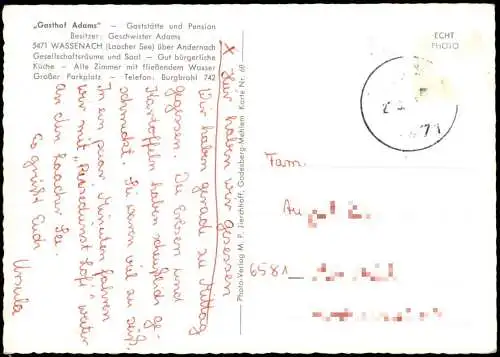 „Gasthof Adams" – Gaststätte und Pension
Besitzer: Geschwister Adams
5471 WASSENACH (Laacher See) über Andernach
Gesellschaftsräume und Saal – Gut bürgerliche
Küche – Alle Zimmer mit fließendem Wasser
Großer Parkplatz – Telefon: Burgbrohl 742
X Hier haben wir gesessen
Wir haben gerade zu Mittag
gegessen. Die Erbsen und
Kartoffeln haben scheußlich ge-
schmeckt. Sie waren viel zu süß.
In ein paar Minuten fahren
wir mit „ " weiter
an den Laacher See.
Es grüßt Euch
Ursula
Photo-Verlag M. P. Jierchhoff, Godesberg-Mehlem Karte Nr. 69
ECHT
PHOTO
Fam.
An
6581